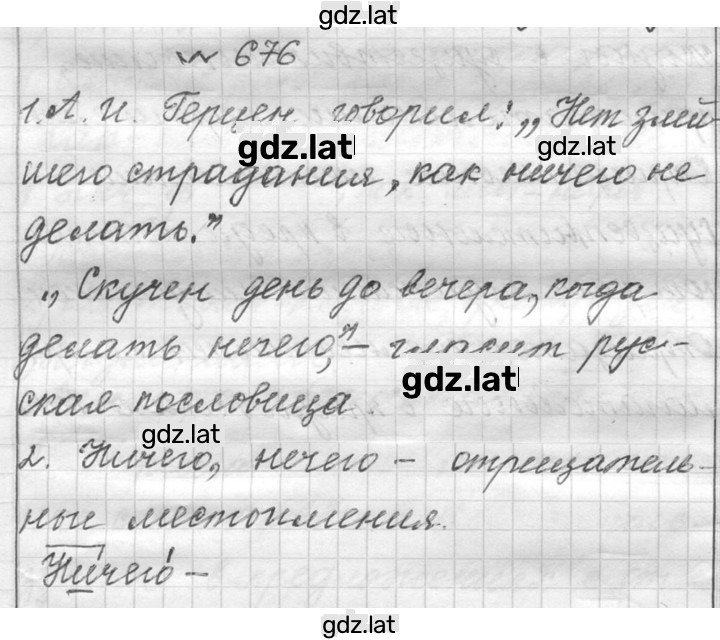 gdz.lat
№ 676
1. А. И. Герцен говорил: „Нет злей-
gdz.lat gdz.lat
шего страдания, как ничего не
делать.”
„Скучен день до вечера, когда
делать нечего,” – гласит рус-
gdz.lat
ская пословица.
gdz.lat
2. Ничего, нечего – отрицатель-
ные местоимения.
Ничего́ –
gdz.lat